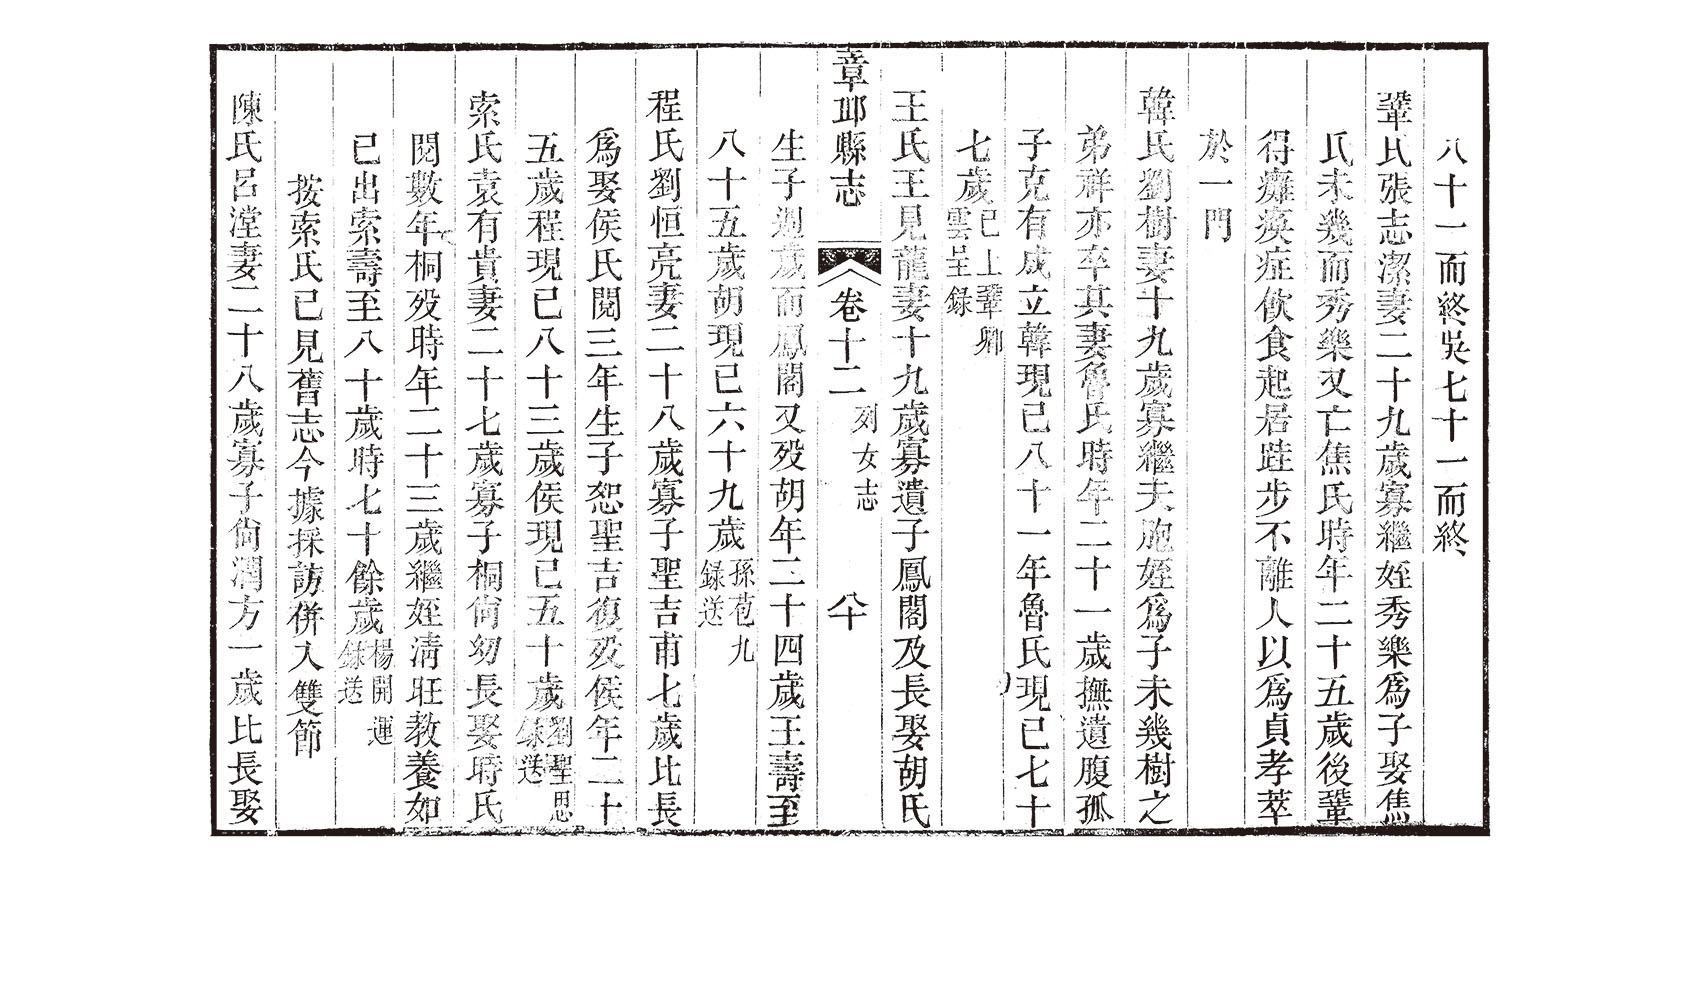 八十一而終吳七十一而終
鞏氏張志潔妻二十九歲寡繼姪秀樂爲子娶焦
氏未幾而秀樂又亡焦氏時年二十五歲後鞏
得癱瘓症飲食起居跬步不離人以爲貞孝萃
於一門
韓氏劉樹妻十九歲寡繼夫胞姪爲子未幾樹之
弟祥亦卒其妻魯氏時年二十一歲撫遺腹孤
子克有成立韓現已八十一年魯氏現已七十
七歲已上鞏卿雲呈錄
王氏王見龍妻十九歲寡遺子鳳閣及長娶胡氏
章邱縣志 卷十二 列女志 八十
生子週歲而鳳閣又歿胡年二十四歲王壽至
八十五歲胡現已六十九歲孫苞九錄送
程氏劉恒亮妻二十八歲寡子聖吉甫七歲比長
爲娶侯氏閱三年生子恕聖吉復歿侯年二十
五歲程現已八十三歲侯現已五十歲劉聖思錄送
索氏袁有貴妻二十七歲寡子桐尙幼長娶時氏
閱數年桐歿時年二十三歲繼姪清旺教養如
已出索壽至八十歲時七十餘歲楊開運錄送
按索氏已見舊志今據採訪併入雙節
陳氏呂瀅妻二十八歲寡子尙潤方一歲比長娶